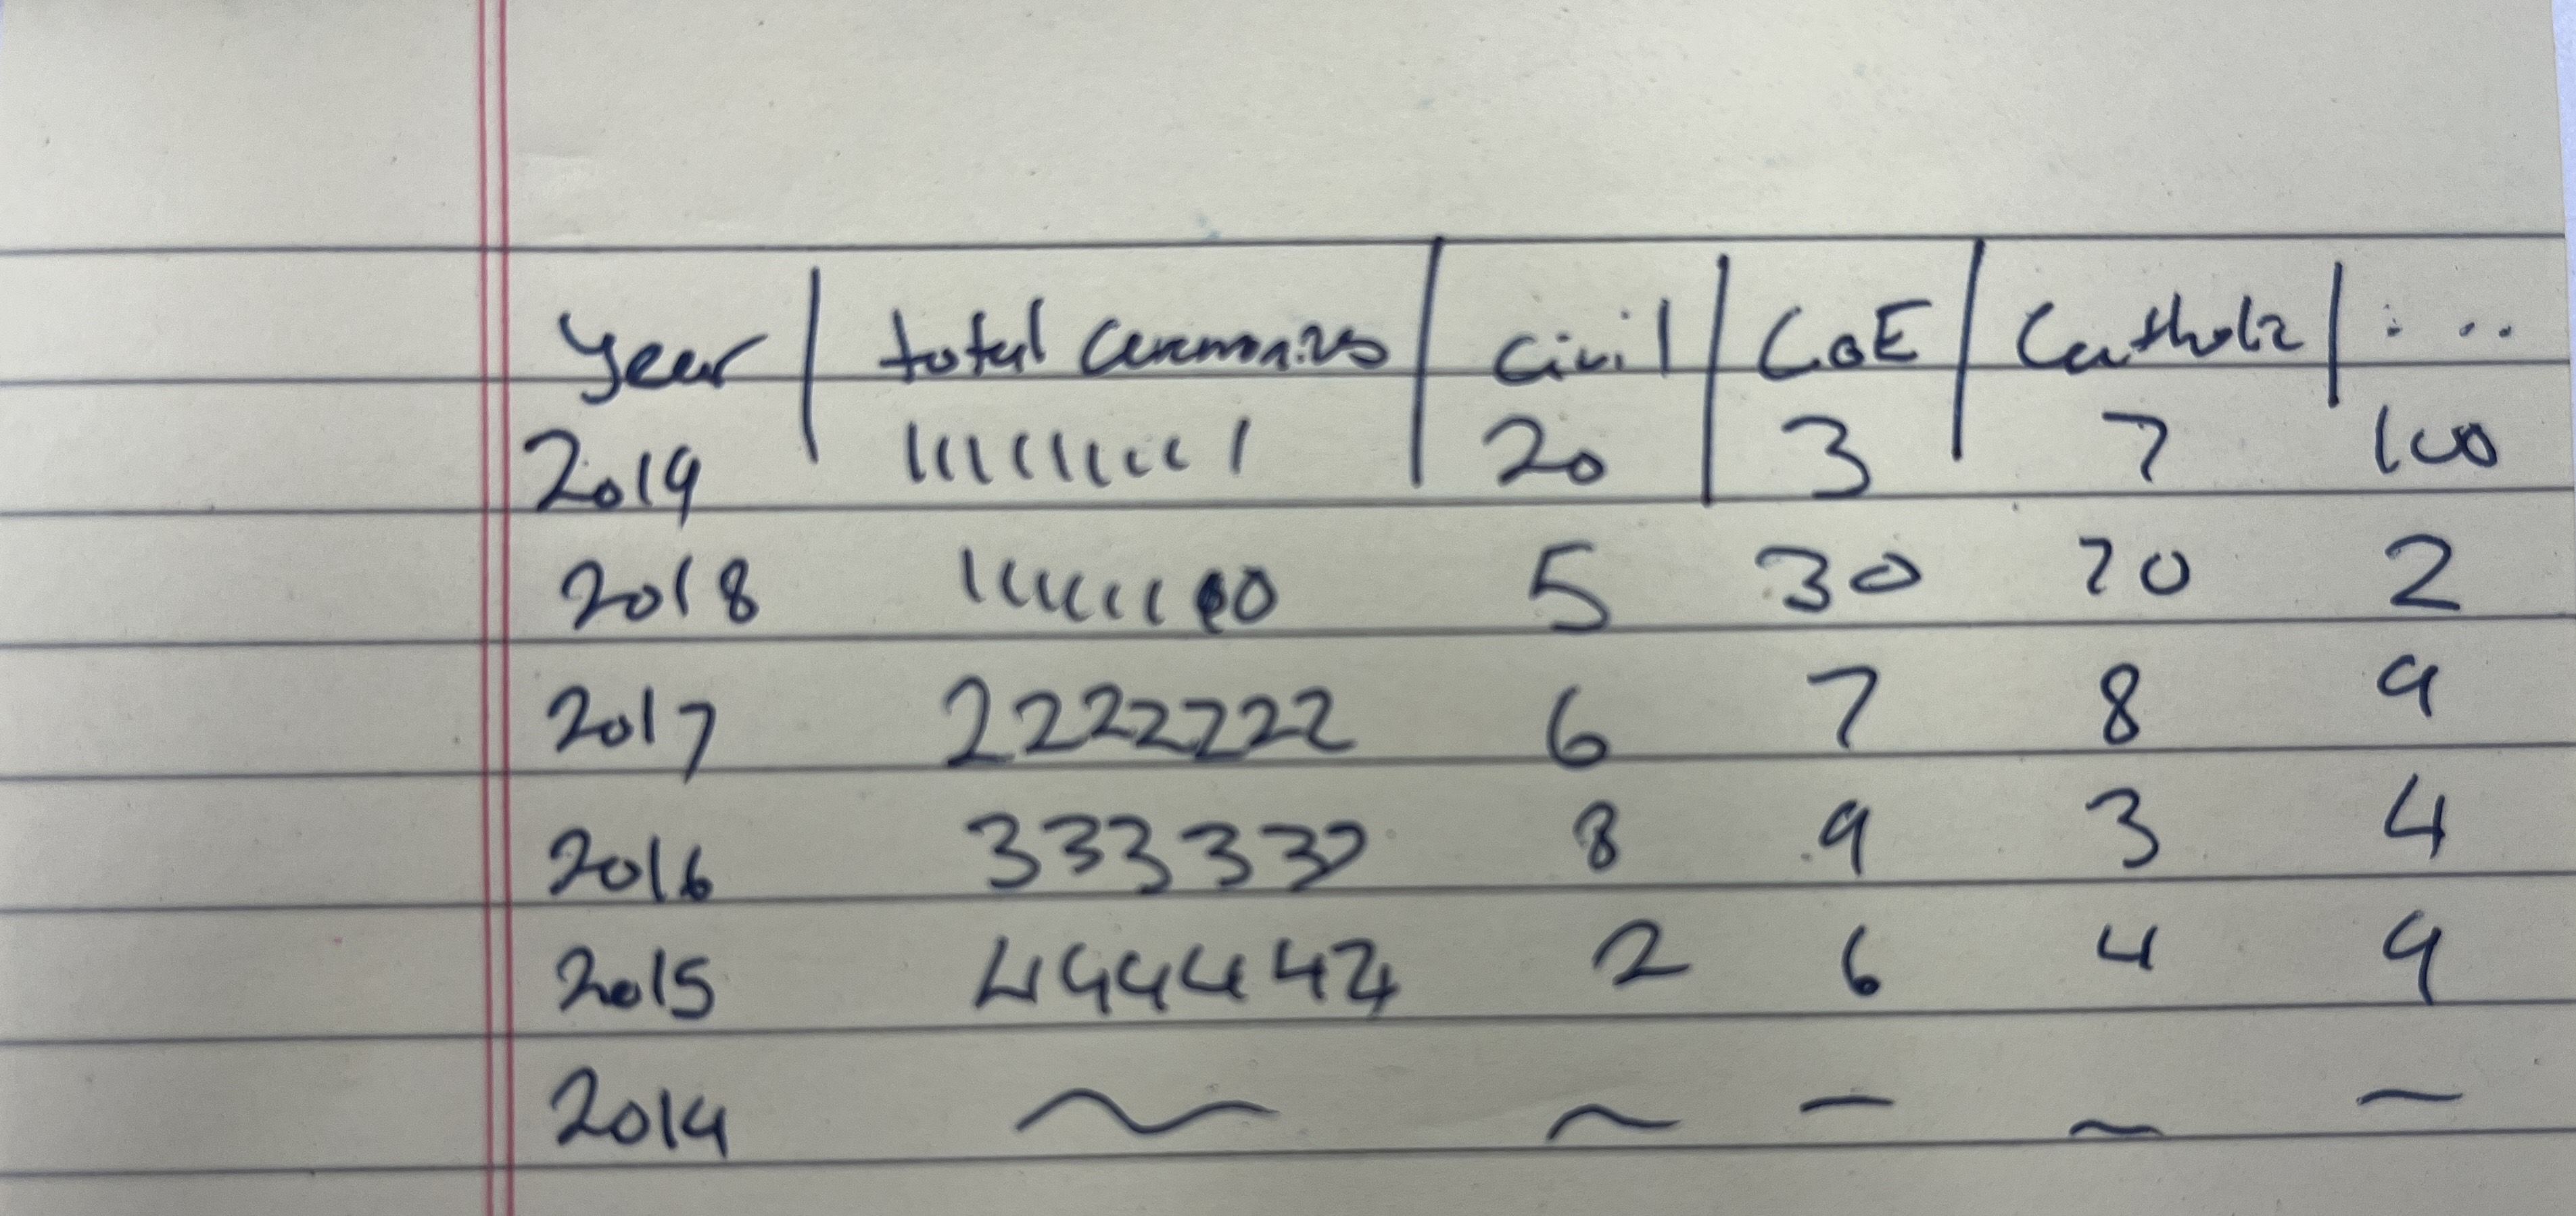 Year | total ceremonies | Civil | CoE | Catholic | ...
2019 1111111111 20 3 7 100
2018 5 30 70 2
2017 2222222 6 7 8 9
2016 333333 8 9 3 4
2015 444444 2 6 4 9
2014 ~ ~ – ~ ~